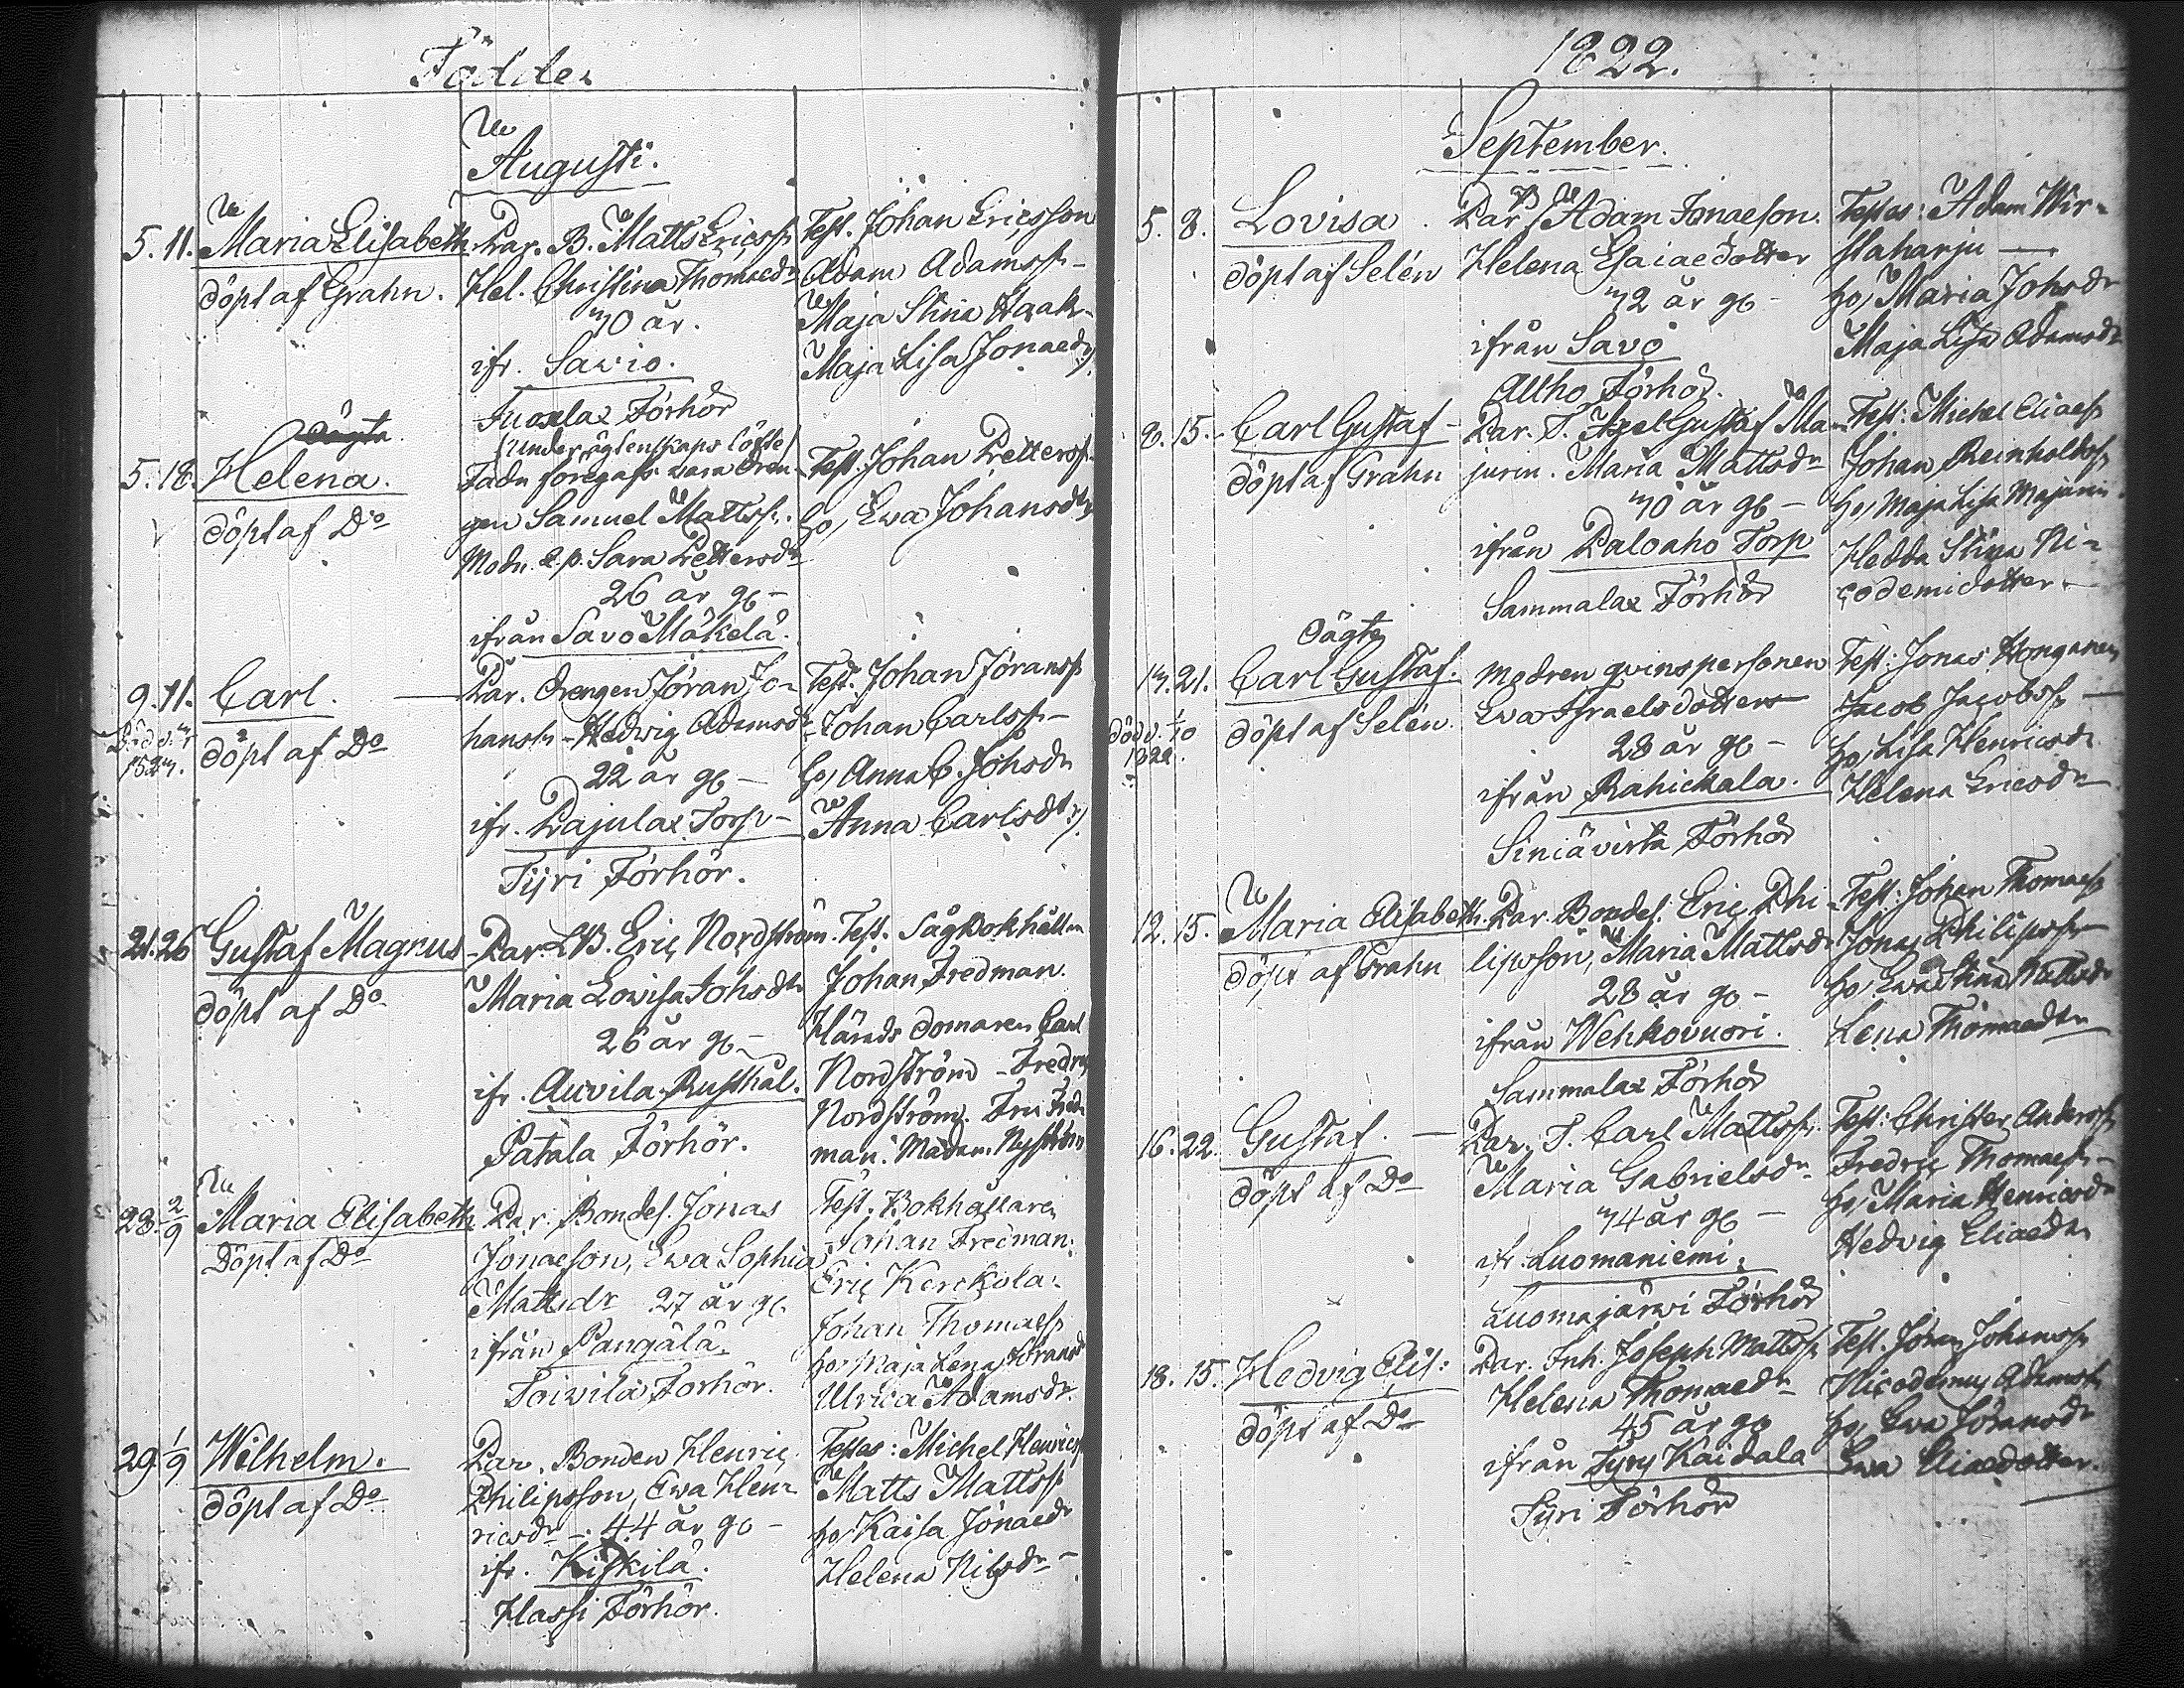 Födde
Augusti.
5. 11. Maria Elisabeth
döpt af Grahn.
Par. B. Matts Ericss.
Hel. Christina Thomaedr
40 år.
ifr. Savio.
Tuomlax Förhör
Test. Johan Ericsson
Adam Adamss.
Maja Stina Haak
Maja Lisa Jonaedr
5. 18. Helena.
döpt af Do
(under ägtenskaps löfte)
Fadn föregafs vara Dren-
gen Samuel Mattss.
Modn. Sara Pettersdr
26 år gl
ifrån Savo Mäkelä.
Test. Johan Petterss.
ho, Ewa Johansdtr
9. 11. Carl.
döpt af Do
Par. Drengen Jöran Jo-
hanss. Hedvig Adamsdr
22 år gl
ifr. Pajulax Torp
Tyri Förhör.
Test. Johan Jöranss
Johan Carlss
ho, Anna C. Johsdr
Anna Carlsdtr
21. 26 Gustaf Magnus
döpt af Do
Par. LB. Eric Nordström.
Maria Lovisa Johsdr
26 år gl
ifr. Auvila Rusthål.
Patala Förhör.
Test. Såg Bokhålln
Johan Fredman.
Härads domaren Carl
Nordström - Fredric
Nordström. Fru Fred-
man. Madam Nyström
28. 2/9 Maria Elisabeth
Döpt af Do
Par. Bondes. Jonas
Jonaeson, Ewa Sophia
Mattsdr 27 år gl
ifrån Pangälä.
Toivila Förhör.
Test. Bokhållaren
Johan Fredman.
Eric Kerckola.
Johan Thomaess
ho, Maja Lena Jöransdr
Ulrica Adamsdr.
29 1/9 Wilhelm.
döpt af Do
Par. Bonden Henric
Philipsson, Ewa Hen-
ricsdr 44 år gl
ifr. Kiskilä.
Hassi Förhör.
Testes: Michel Henricss
Matts Mattss
ho, Kaisa Jonaedr
Helena Nilsdr
1822.
September.
5. 8. Lovisa.
döpt af Selén
Par B. Adam Jonaeson.
Helena Esaiaedotter
42 år gl
ifrån Savo
Altho Förhör.
Testes: Adam Wir-
staharju
ho, Maria Johsdr
Maja Lisa Adamsdr
8. 15. Carl Gustaf
döpt af Grahn
Par. T. Axel Gustaf Ma-
jurin. Maria Mattsdr
40 år gl
ifrån Paloaho Torp
Sammalax Förhör
Test: Michel Eliaess
Johan Reinholdss
ho, Maja Lisa Majurin
Hedda Stina Ni-
codemidotter
Oägta
14. 21. Carl Gustaf.
döpt af Selén.
Modren qvinspersonen
Eva Israelsdotter
28 år gl
ifrån Rahickala.
Siniävirta Förhör
Test: Jonas Honganen
Jacob Jacobss
ho, Lisa Henricsdr
Helena Ericsdr
12. 15. Maria Elisabeth.
döpt af Grahn
Par. Bondes. Eric Phi-
lipsson, Maria Mattsdr
28 år gl
ifrån Wehkovuori.
Sammalax Förhör
Test: Johan Thomaess
Jonas Philipss
ho, Ewa Stina Mattsdr
Lena Thomaedtr
16. 22. Gustaf.
döpt af Do
Par. T. Carl Mattss.
Maria Gabrielsdr
44 år gl
ifr. Luomaniemi.
Luomajärvi Förhör
Test: Christer Anderss
Fredric Thomaess
ho, Maria Henricsdr
Hedvig Eliaedtr
18. 15. Hedvig Elis:
döpt af Do
Par. Inh. Joseph Mattss.
Helena Thomaedr
45 år gl
ifrån Tyry Kaidala
Tyri Förhör
Test. Jöran Johanss
Nicodemus Adamss
ho, Ewa Jöransdr
Ewa Eliaedotter.